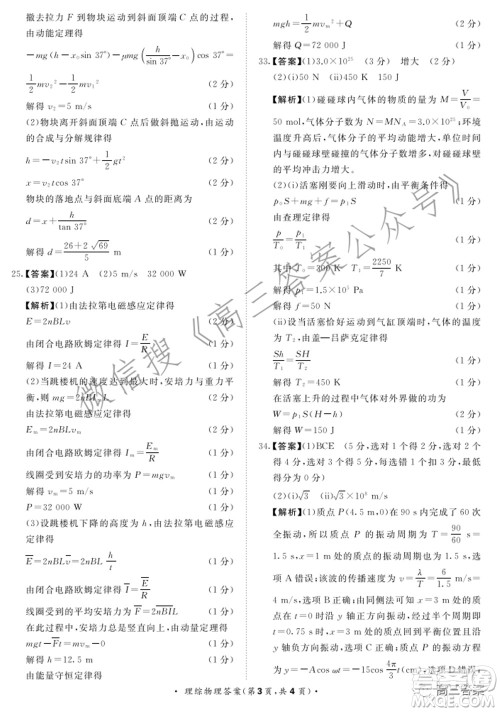 撤去拉力 F 到物块运动到斜面顶端 C 点的过程，
由动能定理得
−mg(h−x₀sin 37°)−f(h/sin 37°−x₀)cos 37°=
1/2 mv₂²−1/2 mv₁² (2 分)
解得 v₂=5 m/s (1 分)
(2)物块离开斜面顶端 C 点后做斜抛运动，由运动
的合成与分解规律得
h=−v₂t sin 37°+1/2 gt² (2 分)
x=v₂t cos 37° (2 分)
物块的落地点与斜面左端 A 点的距离为
d=x+h/tan 37° (2 分)
解得 d=(26+2√69)/5 m (1 分)
25.【答案】(1)24 A (2)5 m/s 32 000 W
(3)72 000 J
【解析】(1)由法拉第电磁感应定律得
E=2nBLv (2 分)
由闭合电路欧姆定律得 I=E/R (1 分)
解得 I=24 A (1 分)
(2)当跳楼机的速度达到最大时，安培力与重力平
衡，则有 mg=2nBIₘL (2 分)
由法拉第电磁感应定律得
Eₘ=2nBLvₘ (1 分)
由闭合电路欧姆定律得 Iₘ=Eₘ/R (1 分)
线圈受到安培力的功率为 P=mgvₘ (1 分)
解得 vₘ=5 m/s (1 分)
P=32 000 W (1 分)
(3)设跳楼机下降的高度为 h，由法拉第电磁感应
定律得
E=2nBLv=2nBL h/t (1 分)
由闭合电路欧姆定律得 I=E/R (1 分)
线圈受到的平均安培力为 F=2nBIL (1 分)
在此过程中，安培力总是竖直向上，由动量定理得
mgt−Ft=mvₘ−0 (1 分)
解得 h=12.5 m (1 分)
由能量守恒定律得
mgh=1/2 mvₘ²+Q (2 分)
解得 Q=72 000 J (2 分)
33.【答案】(1)3.0×10²⁵ (3 分) 增大 (2 分)
(2)(i)50 N (ii)450 K 150 J
【解析】(1)碰碰球内气体的物质的量为 M=V/V₀=
50 mol，分子个数为 N=MNA=3.0×10²⁵ 个，环境
温度升高，气体分子的平均动能增大，单位时间内
与碰碰球球壁碰撞的气体分子数增多，对碰碰球
球壁的压力增大。
(2)(i)活塞刚要向上滑动时，由平衡条件得
p₀S+mg+f=p₁S (1 分)
由查理定律得
p/T₀=p₁/T₁ (1 分)
其中 T₀=300 K，T₁=2250/7 K (1 分)
解得 p₁=1.5×10⁵ (1 分)
解得 f=50 N (1 分)
(ii)设当活塞恰好运动到气缸顶端时，气体的温度
为 T₂，由盖—吕萨克定律得
Sh/T₁=SH/T₂ (1 分)
解得 T₂=450 K (1 分)
在活塞上升的过程中气体对外界做的功为
W=p₁S(H−h) (1 分)
解得 W=150 J (1 分)
34.【答案】(1)BCE (5 分，选对 1 个得 2 分，选对 2 个
得 4 分，选对 3 个得 5 分，每选错 1 个扣 3 分，最低
得分为 0 分)
(2)(i)√3 (ii)√3×10⁸ m/s
【解析】(1)质点 P(4.5 m，0)在 90 s 内完成了 60 次
全振动，所以质点 P 的振动周期为 T=90/60 s=
1.5 s，x 轴上各处的质点的振动周期也为 1.5 s，选
项 A 错误；该波的传播速度为 v=λ/T=6/1.5 m/s=
4 m/s，选项 B 正确；由同侧法可知质点 P 在
t=0 时沿 y 轴正方向振动，经过半个周期，即
t=0.75 s 时，质点 P 刚好经过平衡位置且沿 y
轴负方向振动，选项 C 正确；x=0 处的质点做简谐
运动的表达式为 y=−a cos ωt=−15cos 4π/3 t(cm)，
选项 D 错误；
· 理综物理答案(第 3 页，共 4 页) ·
微信搜《高三答案公众号》